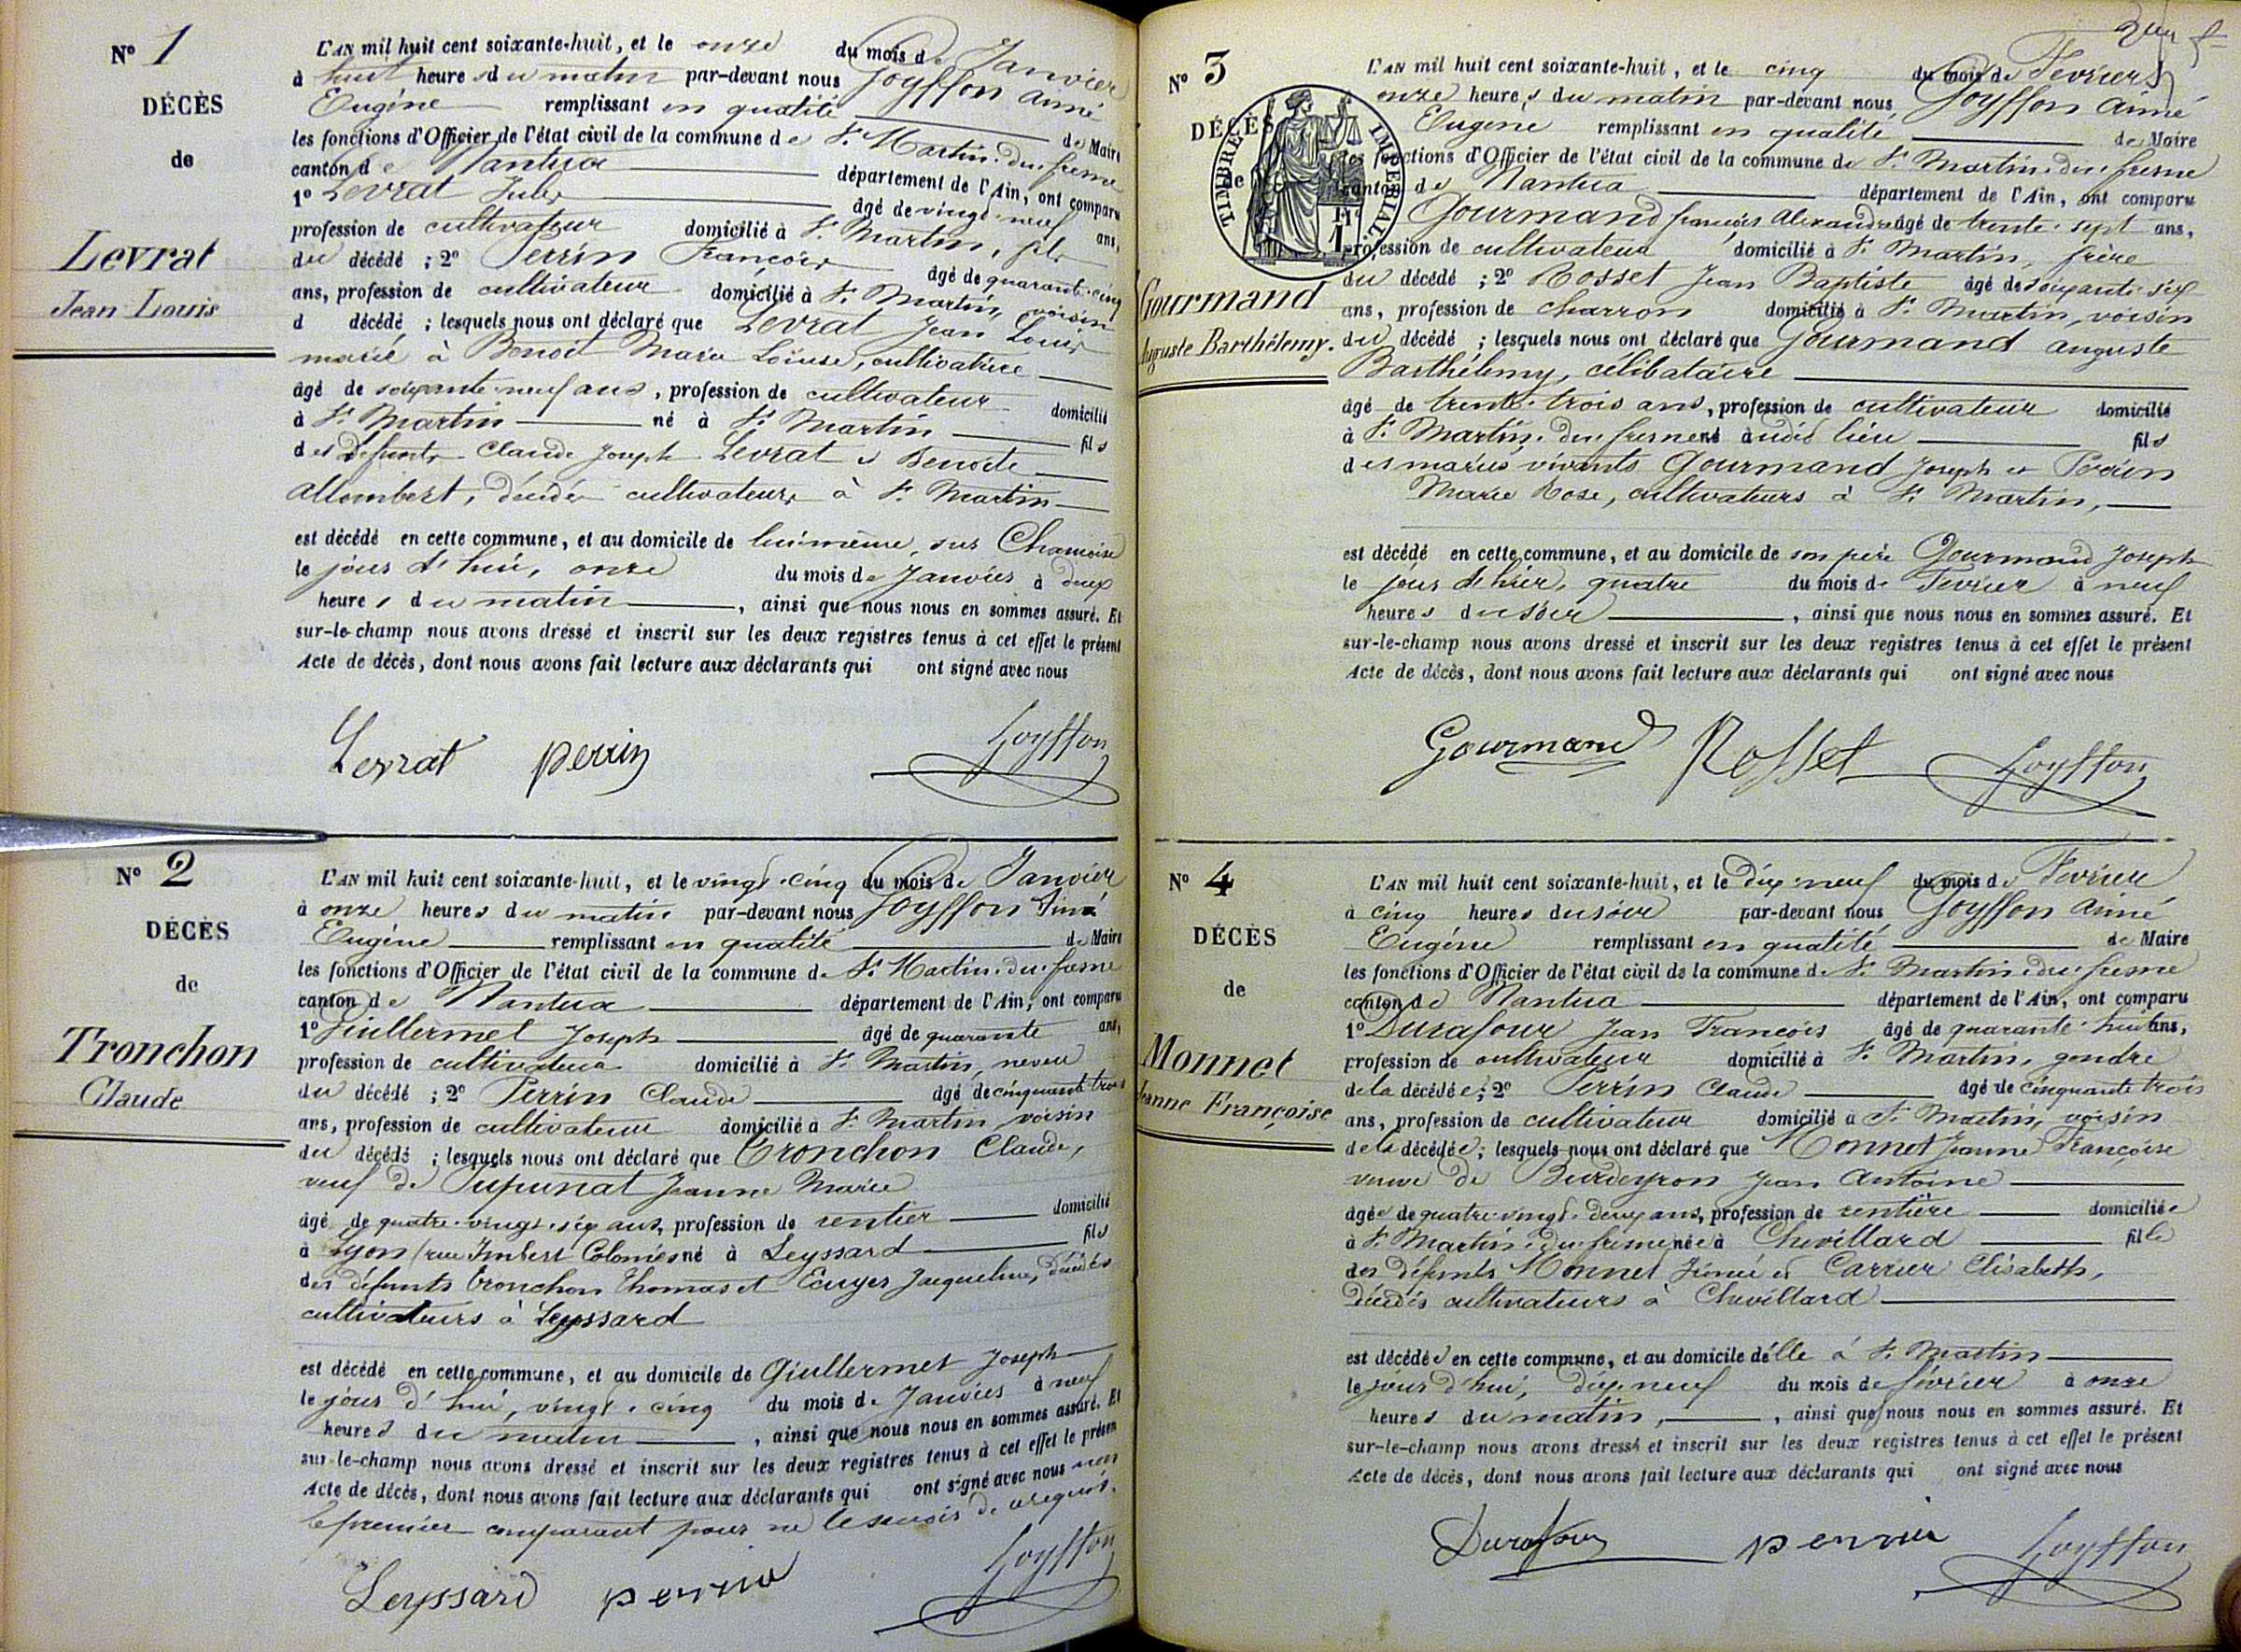 N° 1
DÉCÈS
de
Levrat
Jean Louis
L'AN mil huit cent soixante-huit, et le onze du mois de Janvier
à huit heures du matin par-devant nous Goyffon Aimé
Eugène remplissant en qualité de Maire
les fonctions d'Officier de l'état civil de la commune de St Martin-du-fresne
canton de Nantua département de l'Ain, ont comparu
1° Levrat Jules âgé de vingt-neuf ans,
profession de cultivateur domicilié à St Martin, fils
du décédé ; 2° Perrin François âgé de quarante-cinq
ans, profession de cultivateur domicilié à St Martin, voisin
d décédé ; lesquels nous ont déclaré que Levrat Jean Louis
marié à Benoit Marie Loüise, cultivatrice
âgé de soixante-neuf ans, profession de cultivateur domicilié
à St Martin né à St Martin fils
des défunts Claude Joseph Levrat et Benoite
Allombert, décédés cultivateurs à St Martin
est décédé en cette commune, et au domicile de lui-même, sur Chamoise
le jour d'hui, onze du mois de Janvier à deux
heures du matin, ainsi que nous nous en sommes assuré. Et
sur-le-champ nous avons dressé et inscrit sur les deux registres tenus à cet effet le présent
Acte de décès, dont nous avons fait lecture aux déclarants qui ont signé avec nous
Levrat perrin Goyffon
N° 2
DÉCÈS
de
Tronchon
Claude
L'AN mil huit cent soixante-huit, et le vingt-cinq du mois de Janvier
à onze heures du matin par-devant nous Goyffon Aimé
Eugène remplissant en qualité de Maire
les fonctions d'Officier de l'état civil de la commune de St Martin-du-fresne
canton de Nantua département de l'Ain, ont comparu
1° Guillermet Joseph âgé de quarante ans,
profession de cultivateur domicilié à St Martin, neveu
du décédé ; 2° Perrin Claude âgé de cinquante trois
ans, profession de cultivateur domicilié à St Martin, voisin
du décédé ; lesquels nous ont déclaré que Tronchon Claude,
veuf de Jeanne Marie
âgé de quatre-vingt-six ans, profession de rentier domicilié
à Lyon (rue Imbert Colomés né à Leyssard fils
des défunts Tronchon Thomas et Ecuyer Jacqueline, décédés
cultivateurs à Leyssard
est décédé en cette commune, et au domicile de Guillermet Joseph
le jour d'hui, vingt-cinq du mois de Janvier à neuf
heures du matin, ainsi que nous nous en sommes assuré. Et
sur-le-champ nous avons dressé et inscrit sur les deux registres tenus à cet effet le présen
Acte de décès, dont nous avons fait lecture aux déclarants qui ont signé avec nous non
le premier comparant pour ne le savoir de ce requis.
Leyssard perrin Goyffon
N° 3
DÉCÈS
de
TIMBRE IMPERIAL
Gourmand
Auguste Barthélemy.
L'AN mil huit cent soixante-huit, et le cinq du mois de Fevrier à
onze heures du matin par-devant nous Goyffon Aimé
Eugène remplissant en qualité de Maire
les fonctions d'Officier de l'état civil de la commune de St Martin-du-fresne
canton de Nantua département de l'Ain, ont comparu
Gourmand françois Alexandre âgé de trente-sept ans,
profession de cultivateur domicilié à St Martin, frère
du décédé ; 2° Rosset Jean Baptiste âgé de soixante-six
ans, profession de charron domicilié à St Martin, voisin
du décédé ; lesquels nous ont déclaré que Gourmand auguste
Barthélemy, célibataire
âgé de trente-trois ans, profession de cultivateur domicilié
à St Martin-du-fresne né audit lieu fils
des mariés vivants Gourmand Joseph et Perrin
Marie Rose, cultivateurs à St Martin,
est décédé en cette commune, et au domicile de son père Gourmand Joseph
le jour d'hier, quatre du mois de Fevrier à neuf
heures du soir, ainsi que nous nous en sommes assuré. Et
sur-le-champ nous avons dressé et inscrit sur les deux registres tenus à cet effet le présent
Acte de décès, dont nous avons fait lecture aux déclarants qui ont signé avec nous
Gourmand Rosset Goyffon
N° 4
DÉCÈS
de
Monnet
Jeanne Françoise
L'AN mil huit cent soixante-huit, et le dix-neuf du mois de Fevrier
à cinq heures du soir par-devant nous Goyffon Aimé
Eugène remplissant en qualité de Maire
les fonctions d'Officier de l'état civil de la commune de St Martin-du-fresne
canton de Nantua département de l'Ain, ont comparu
1° Durafour Jean François âgé de quarante-huit ans,
profession de cultivateur domicilié à St Martin, gendre
de la décédée ; 2° Perrin Claude âgé de cinquante trois
ans, profession de cultivateur domicilié à St Martin, voisin
de la décédée ; lesquels nous ont déclaré que Monnet Jeanne Françoise
veuve de Burdeyron Jean Antoine
âgée de quatre-vingt-deux ans, profession de rentière domiciliée
à St Martin-du-fresne née à Chevillard fille
des défunts Monnet et Carrier Elisabeth,
décédés cultivateurs à Chevillard
est décédée en cette commune, et au domicile d'elle à St Martin
le jour d'hui, dix-neuf du mois de février à onze
heures du matin, ainsi que nous nous en sommes assuré. Et
sur-le-champ nous avons dressé et inscrit sur les deux registres tenus à cet effet le présent
Acte de décès, dont nous avons fait lecture aux déclarants qui ont signé avec nous
Durafour perrin Goyffon